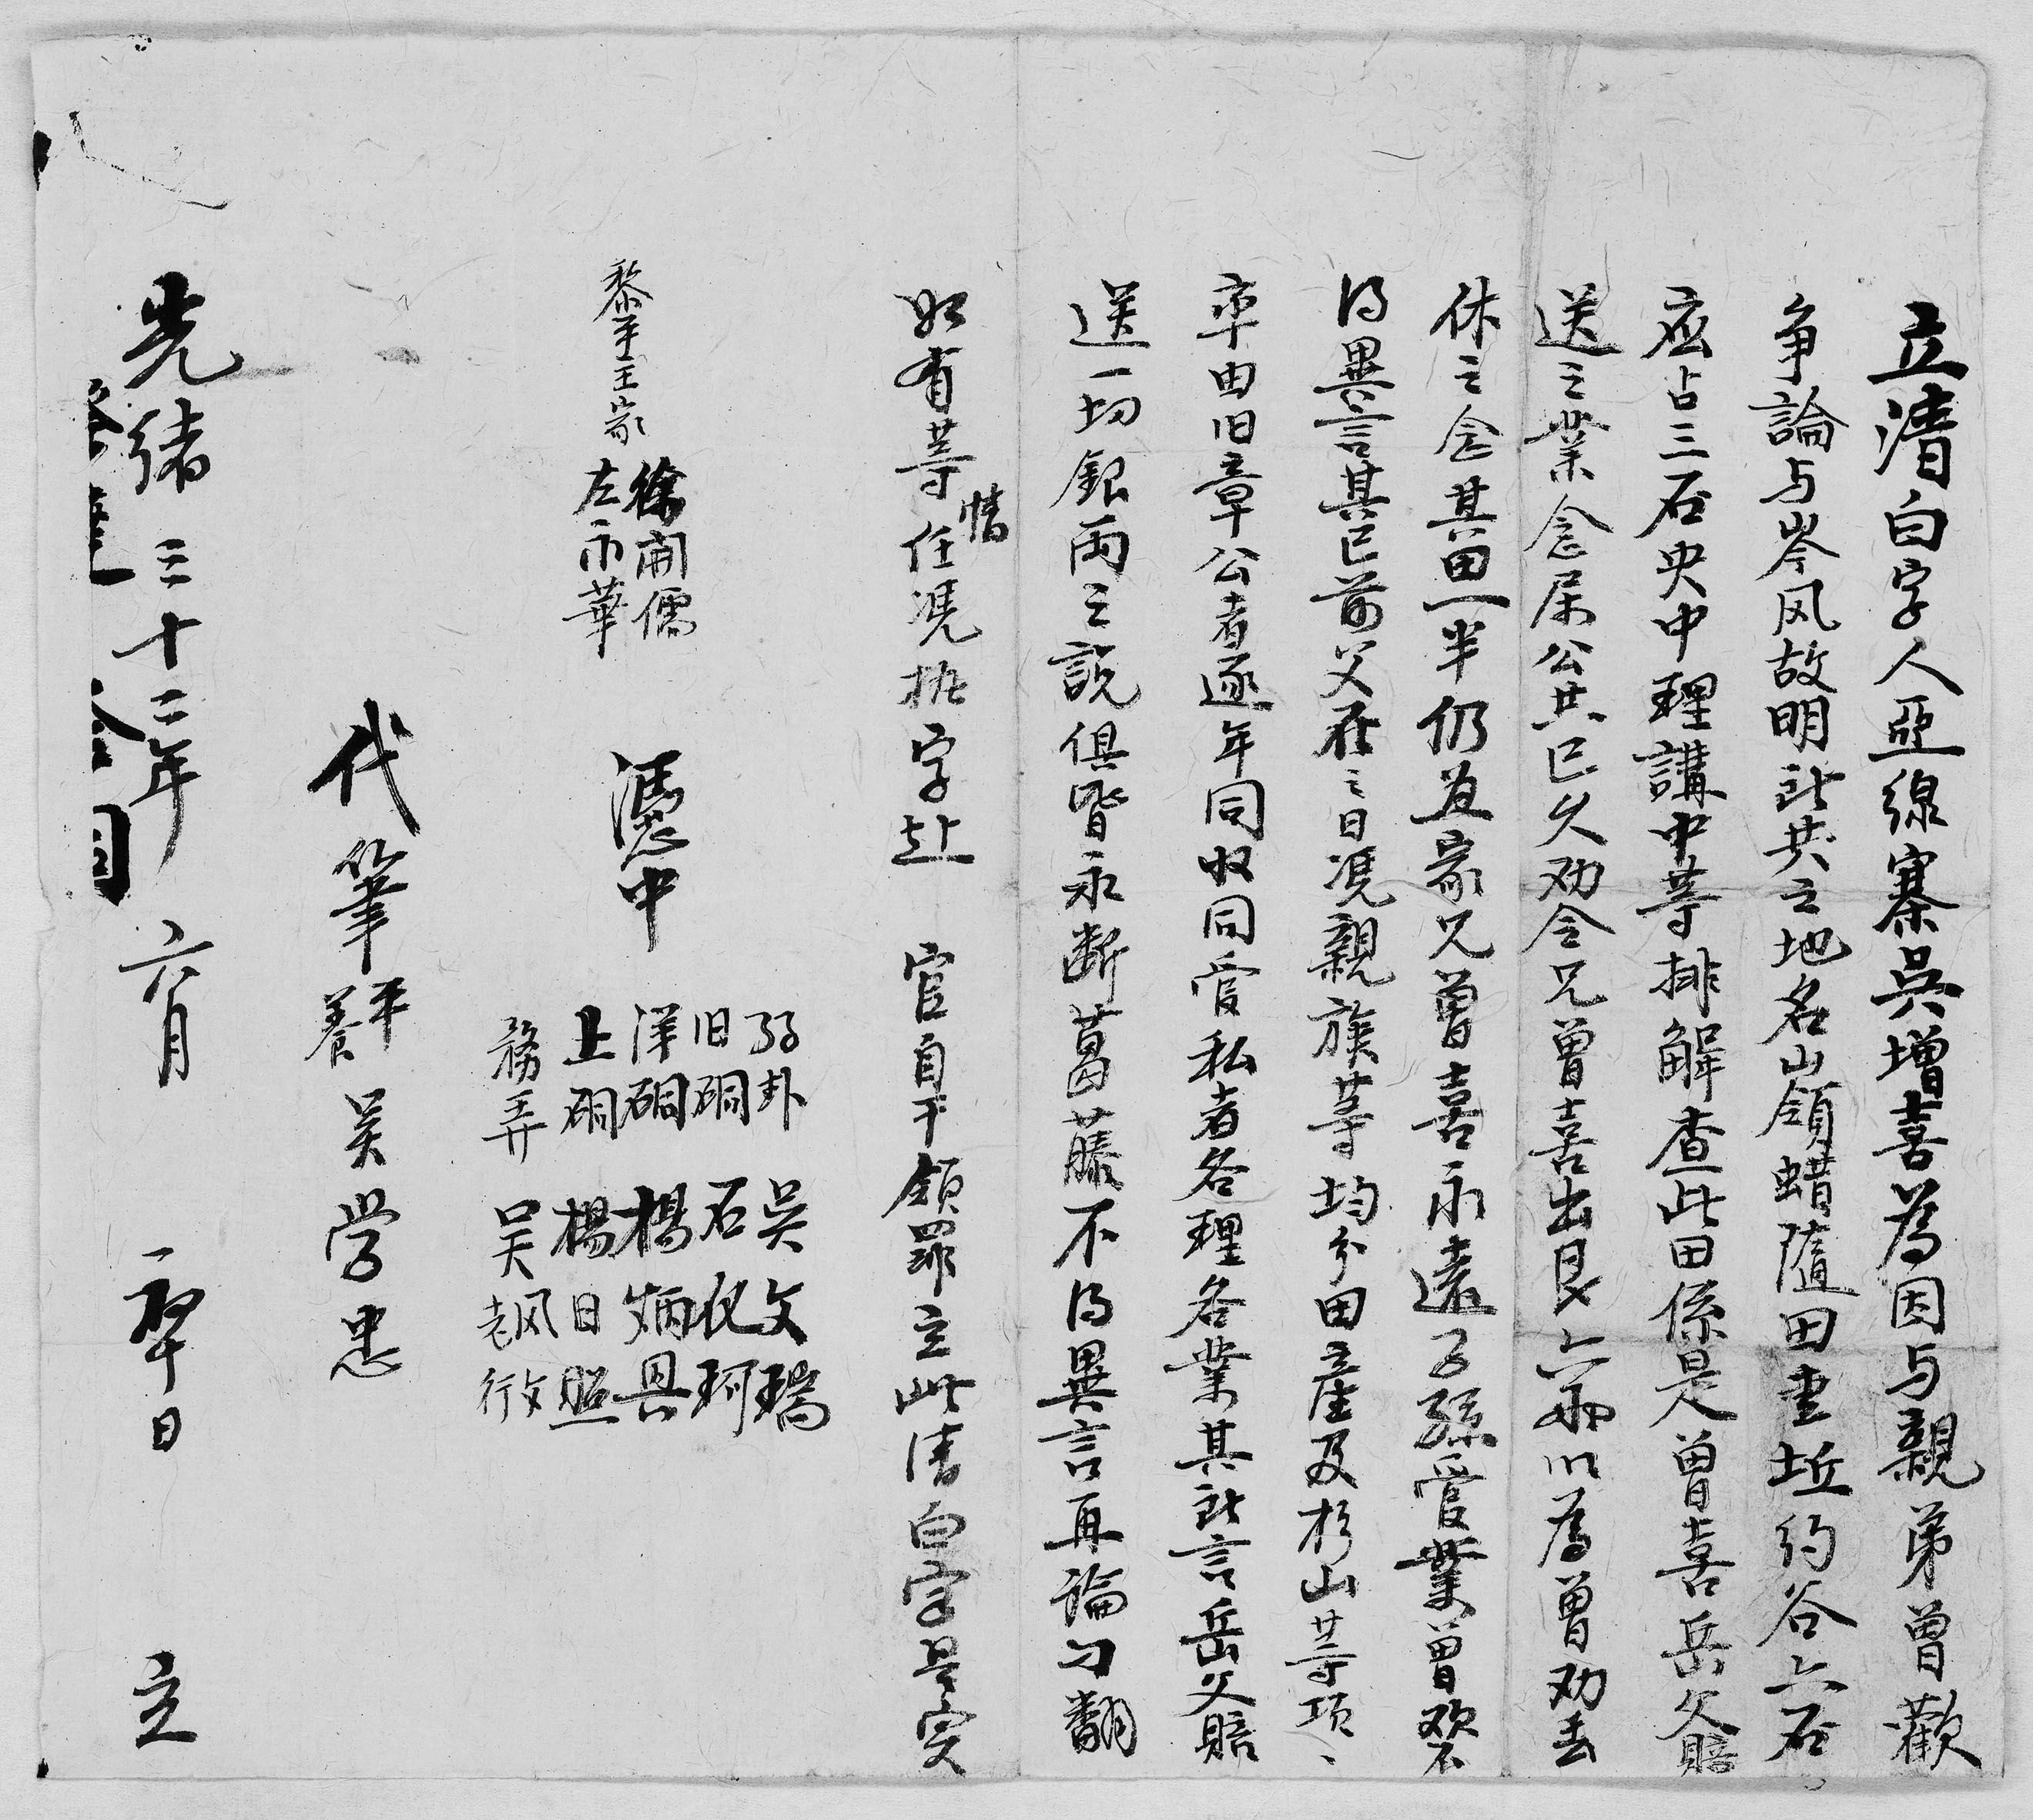 立清白字人亞線寨吳增喜為因与親弟曾歡
争論与岑风故明計共之地名山領蜡隨田壹坵約谷六石
应占三石央中理講中等排解查此田係是曾喜岳父賠
送之業念属公共已久劝令兄曾喜出艮六両以為曾劝去
休之念其田一半仍並家兄曾喜永遠子孫管業曾歡不
得異言其已前父在之日凴親族等均分田產及杉山等項
率由旧章公者逐年同收同管私者各理各業其計言岳父賠
送一切銀両之說俱皆永断葛藤不得異言再論刁翻
如有等情任凴执字赴 官自干領罪立此清白字是实
黎平王家 徐開儒
左示華
憑中
弱卦 吳文瑞
旧硐 石化珂
洋硐 楊炳恩
上硐 楊日照
務弄 吴老风 行文
代筆 平養 吴学忠
光緒三十二年 六月 一十四日 立